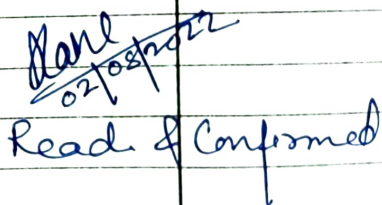 02/08/2022
Read & Confirmed